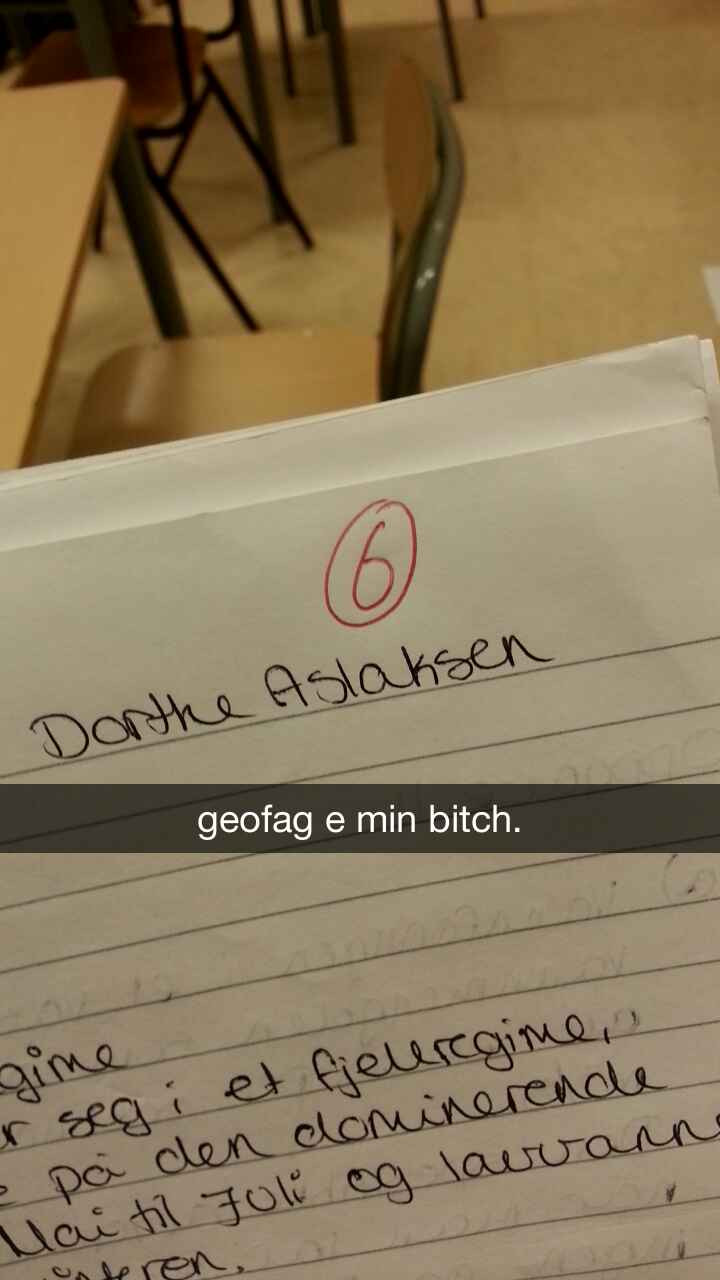 6
Dorthe Aslaksen
geofag e min bitch.
gime
r seg i et fjellregime,
på den dominerende
Mai til Juli og lavvann